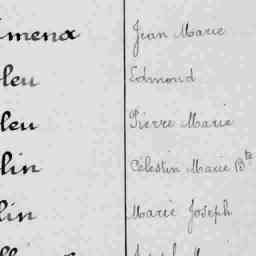 imena Jean Marie
leu Edmond
leu Pierre Marie
lin Célestin Marie Bte
lin Marie Joseph